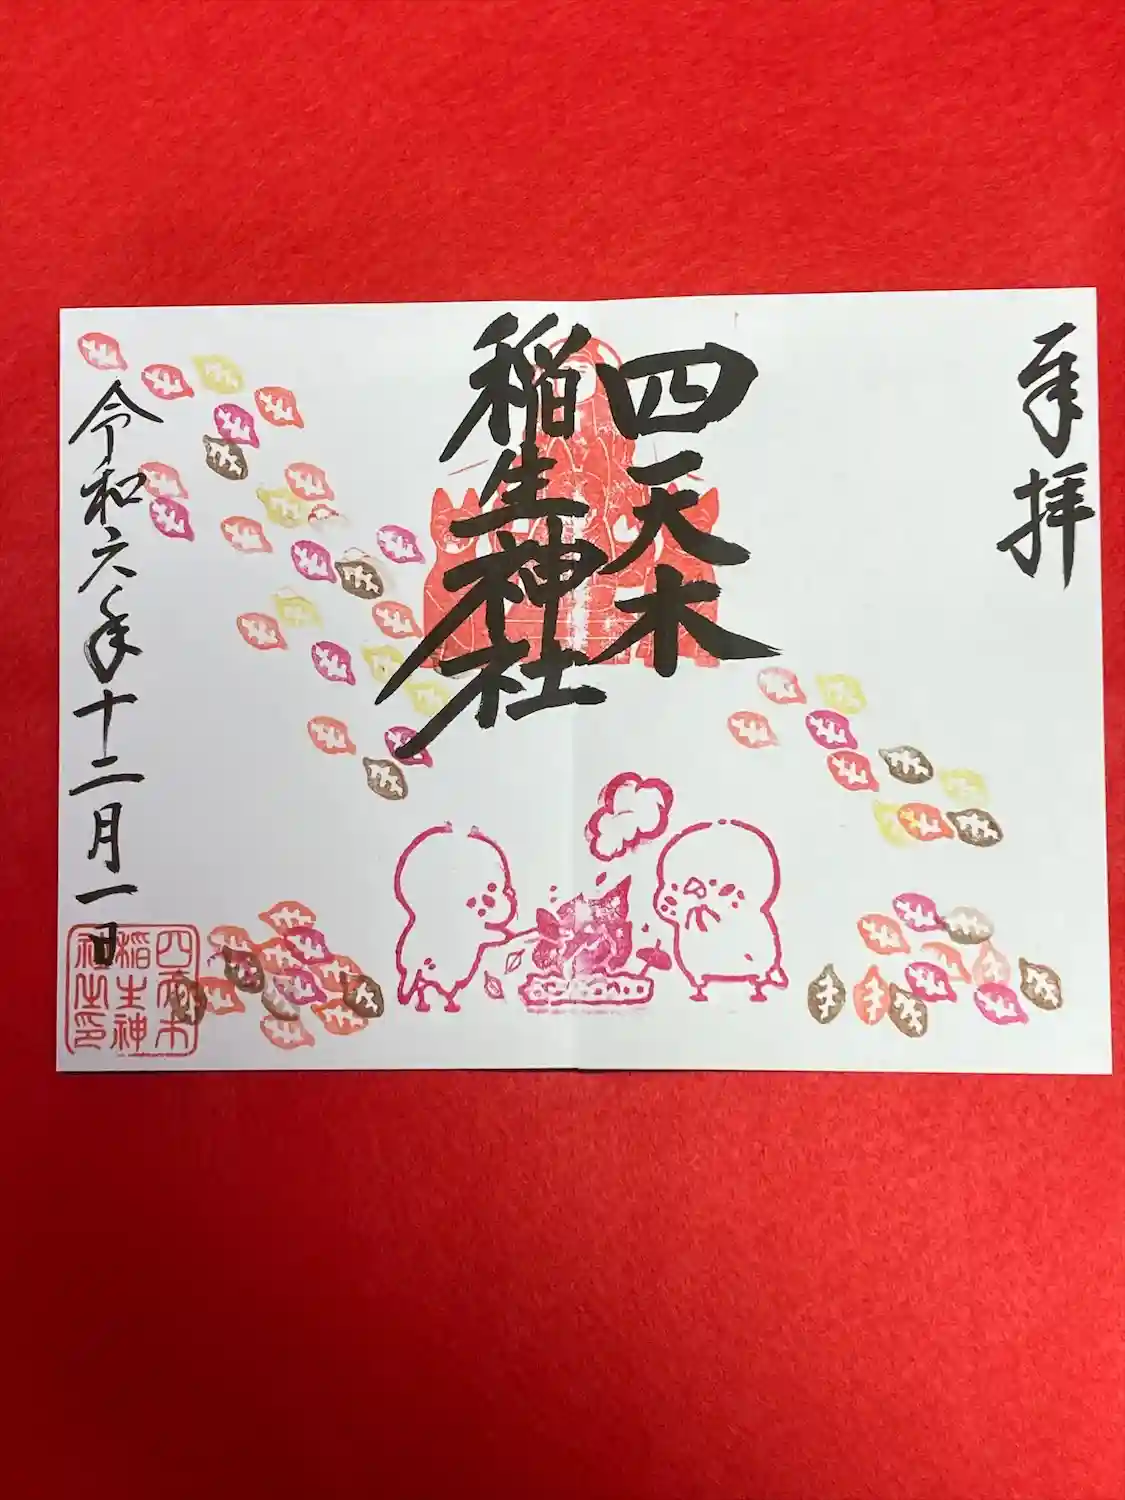 奉拝
四天木
稲生神社
令和六年十二月一日
四天木
稲生神
社之印